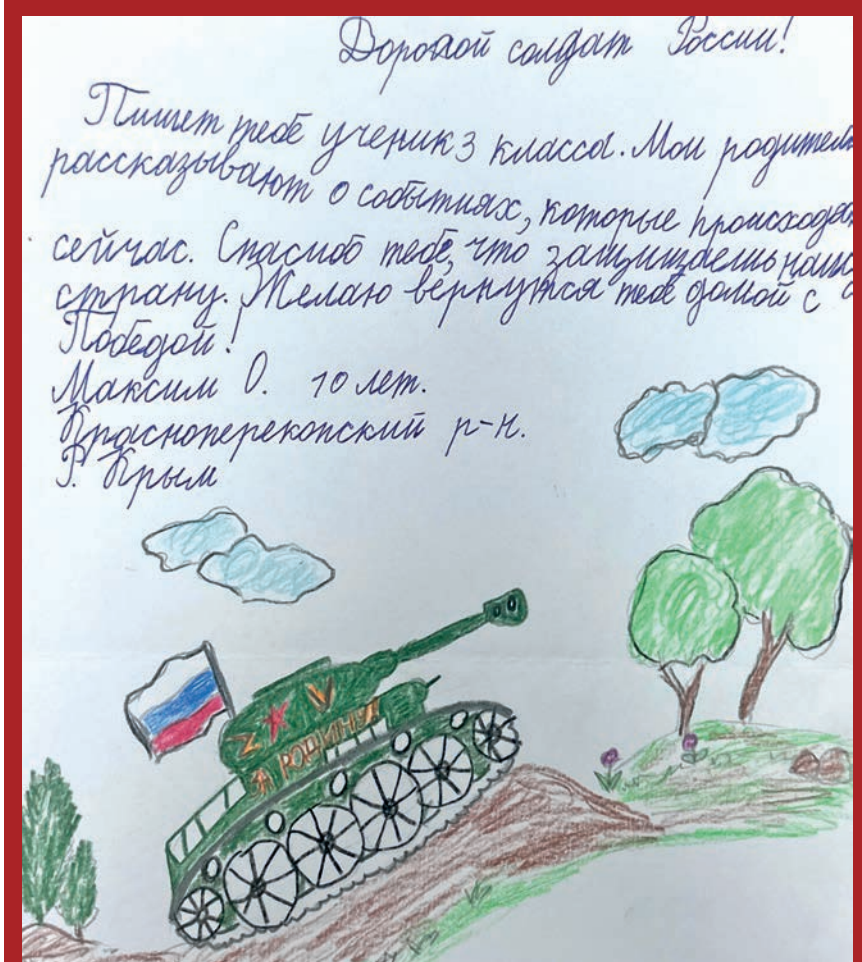 Дорогой солдат России!
Пишет тебе ученик 3 класса. Мои родители
рассказывают о событиях, которые происходят
сейчас. Спасиоб тебе, что защищаешь нашу
страну. Желаю вернутся тебе домой с
Победой!
Максим О. 10 лет.
Красноперекопский р-н.
Р. Крым
Z V
ЗА РОДИНУ